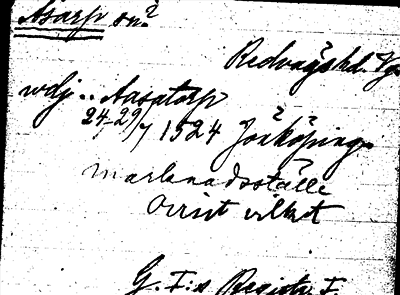 Åsarp sn?
Redvägs hd Vg.
wdj.. Aasatorp
24-29/7 1524 Jönköping
marknadsställe
Ovisst vilket
G. I:s Registr. I.